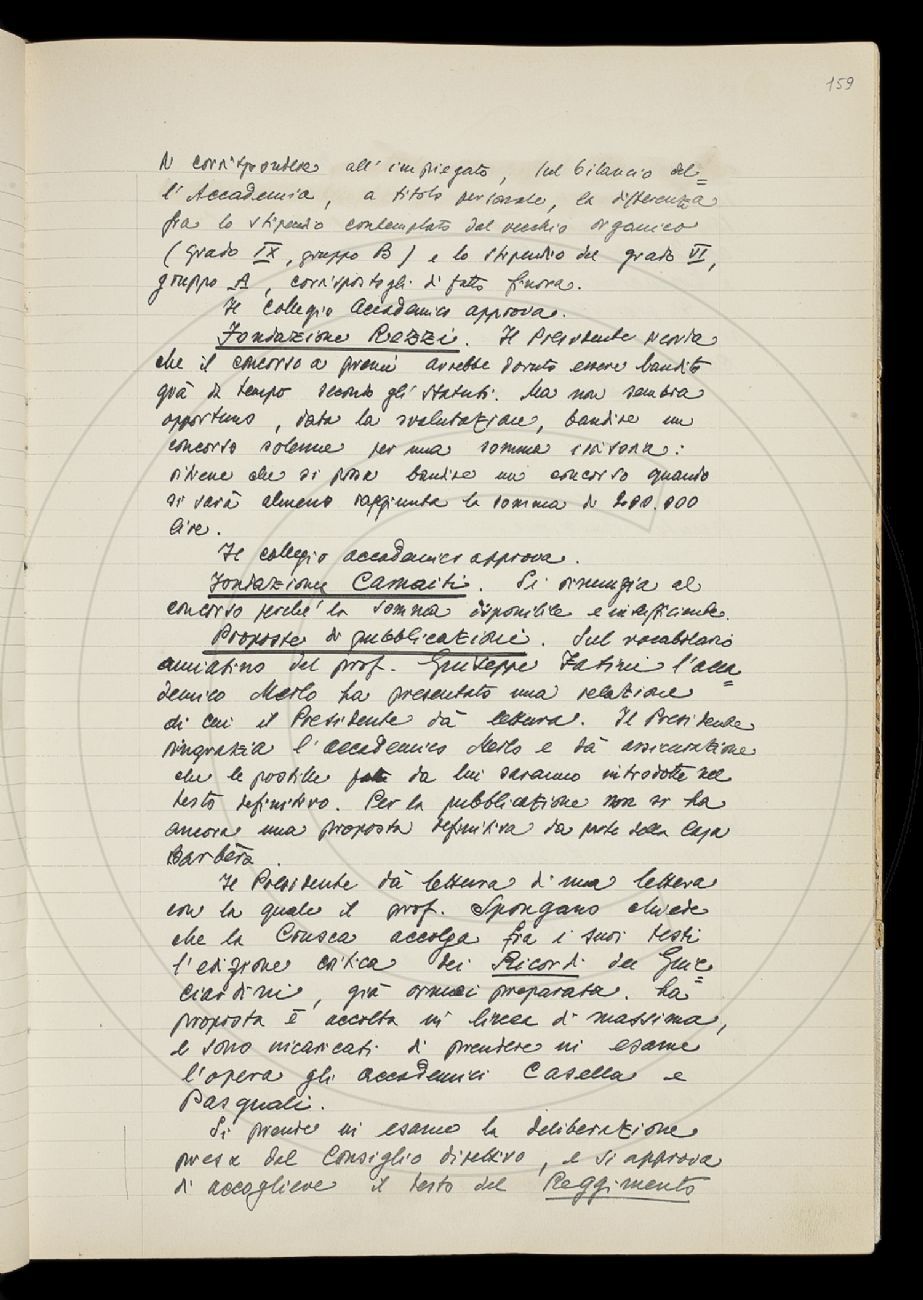 159
di corrispondere all'impiegato, sul bilancio del=
l'Accademia, a titolo personale, la differenza
fra lo stipendio contemplato dal vecchio organico
(grado IX, gruppo B) e lo stipendio del grado VI,
gruppo A, corrispostogli di fatto finora.
Il collegio Accademico approva.
Fondazione Rezzi. Il Presidente ricorda
che il concorso a premi avrebbe dovuto essere bandito
già da tempo secondo gli Statuti. Ma non sembra
opportuno, data la svalutazione, bandire un
concorso solenne per una somma irrisoria:
ritiene che si possa bandire un concorso quando
si sarà almeno raggiunta la somma di 200.000
lire.
Il collegio accademico approva.
Fondazione Camaiti. Si rinunzia al
concorso perché la somma disponibile è insufficiente.
Proposte di pubblicazioni. Sul vocabolario
amiatino del prof. Giuseppe Fatini l'acca=
demico Merlo ha presentato una relazione
di cui il Presidente dà lettura. Il Presidente
ringrazia l'accademico Merlo e dà assicurazione
che le postille da lui saranno introdotte nel
testo definitivo. Per la pubblicazione non si ha
ancora una proposta definitiva da parte della Casa
Barbèra.
Il Presidente dà lettura di una lettera
con la quale il prof. Spongano chiede
che la Crusca accolga fra i suoi testi
l'edizione critica dei Ricordi del Guic=
ciardini, già ormai preparata. La
proposta è accolta in linea di massima,
e sono incaricati di prendere in esame
l'opera gli accademici Casella e
Pasquali.
Si prende in esame la deliberazione
presa dal Consiglio direttivo, e si approva
di accogliere il testo del Reggimento